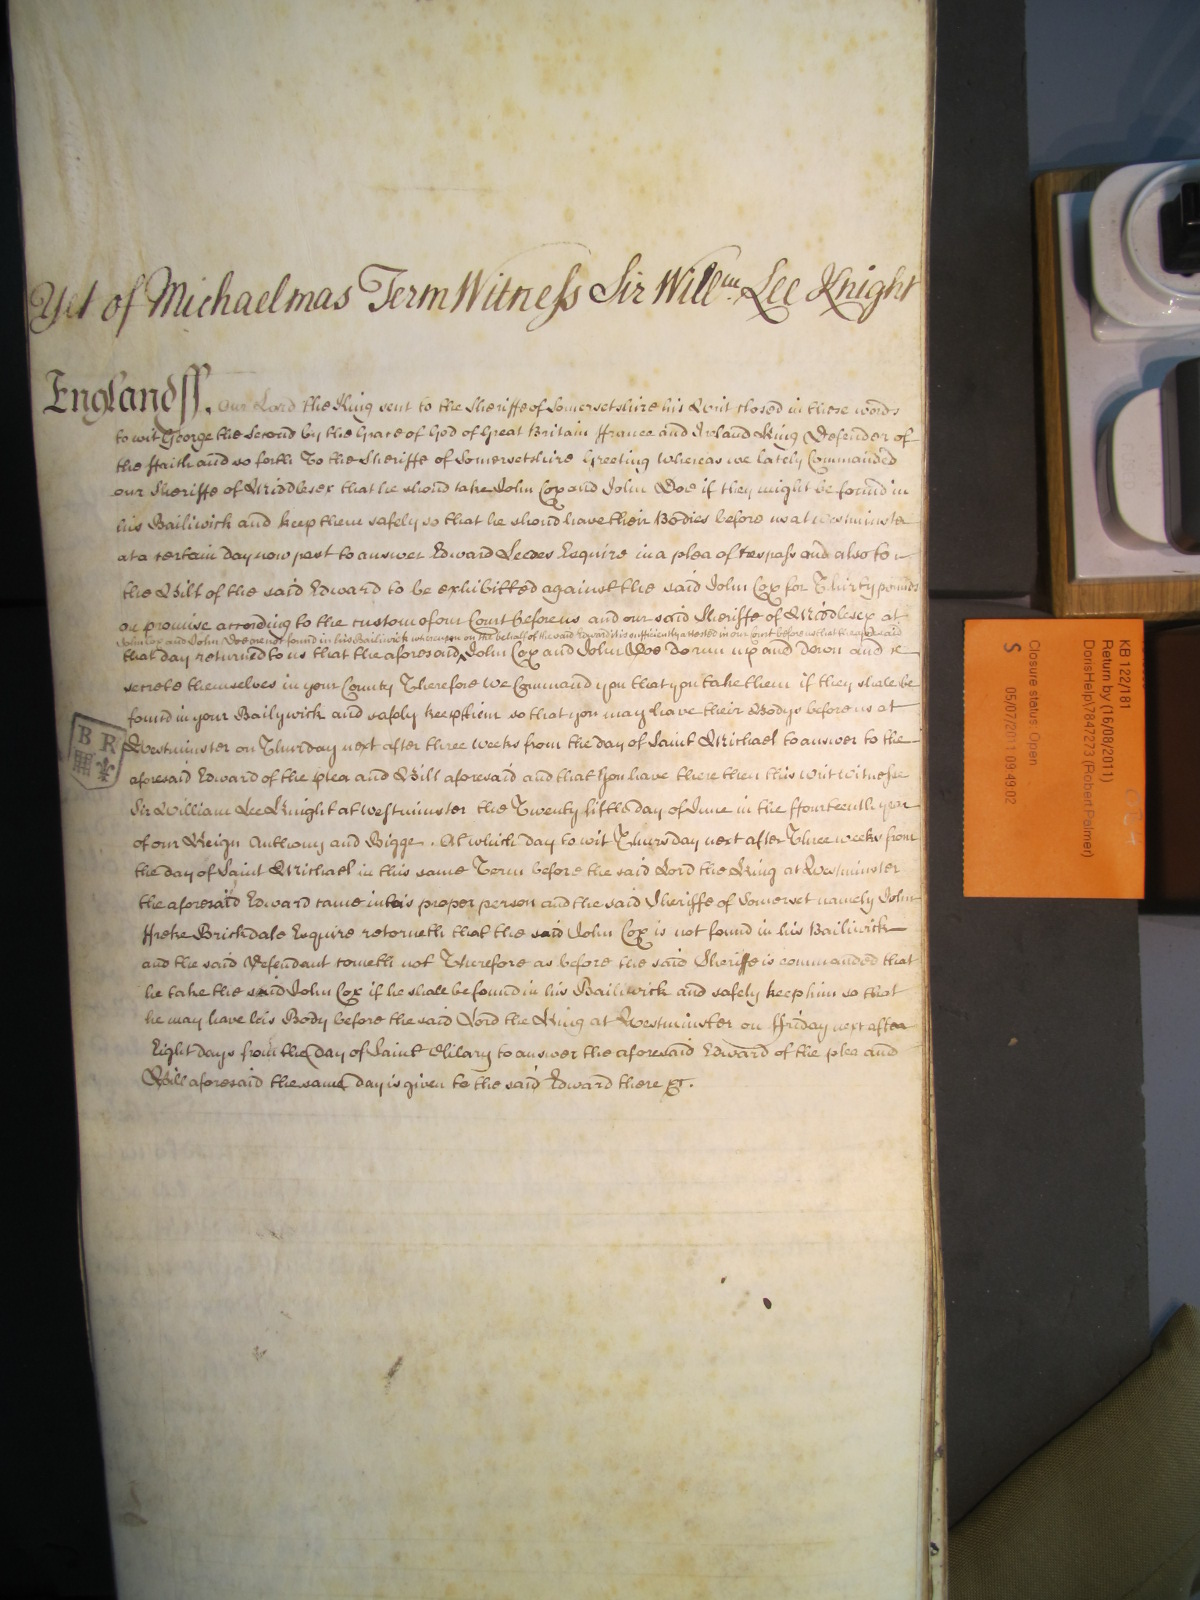 Yet of Michaelmas Term Witness Sir Will.m Lee Knight
England ss. Our Lord the King sent to the Sheriffe of Somersetshire his Writ closed in these words
to wit George the Second by the Grace of God of Great Britain ffrance and Ireland King Defender of
the ffaith and so forth To the Sheriffe of Somersetshire Greeting Whereas we lately Commanded
our Sheriffe of Middlesex that he should take John Cox and John Doe if they might be found in
his Bailiwick and keep them safely so that he should have their Bodies before us at Westminster
at a certain day now past to answer Edward Leedes Esquire in a plea of trespass and also to
the Bill of the said Edward to be exhibitted against the said John Cox for Thirty pounds
on promise according to the custom of our Court before us and our said Sheriffe of Middlesex at
John Cox and John Doe are not found in his Bailiwick whereupon on the behalf of the said Edward it is sufficiently attested in our Court before us that the aforesaid
that day returned to us that the aforesaid John Cox and John Doe do run up and down and
secrete themselves in your County Therefore We Command you that you take them if they shall be
found in your Bailywick and safely keep them so that you may have their Bodys before us at
Westminster on Thursday next after three weeks from the day of Saint Michael to answer to the
aforesaid Edward of the plea and Bill aforesaid and that you have there then this Writ Witnesse
Sir William Lee Knight at Westminster the Twenty fifth day of June in the ffourteenth year
of our Reign Anthony and Bigge. At which day to wit Thursday next after Three weeks from
the day of Saint Michael in this same Term before the said Lord the King at Westminster
the aforesaid Edward came in his proper person and the said Sheriffe of Somerset namely John
ffreke Brickdale Esquire retorneth that the said John Cox is not found in his Bailiwick
and the said Defendant cometh not Therefore as before the said Sheriffe is commanded that
he take the said John Cox if he shall be found in his Bailiwick and safely keep him so that
he may have his Body before the said Lord the King at Westminster on ffriday next after
Eight days from the day of Saint Hilary to answer the aforesaid Edward of the plea and
Bill aforesaid the same day is given to the said Edward there &c.
B R
KB 122/181
Return by (16/08/2011)
DorisHelp\7847273 (Robert Palmer)
Closure status: Open
S
05/07/2011 09:49:02